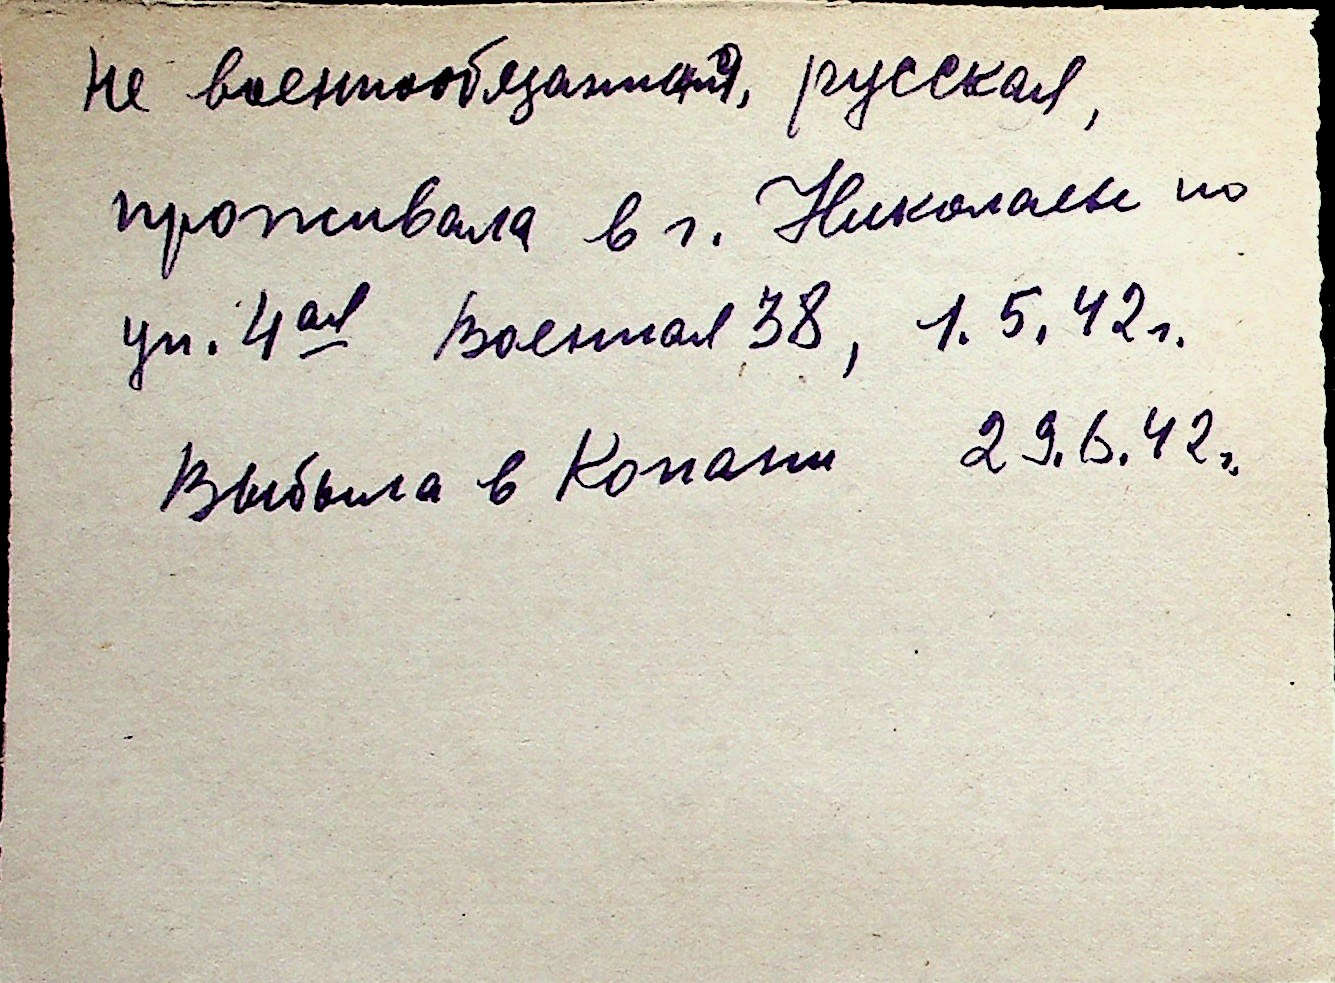 Не военнообязаная, русская,
проживала в г. Николаеве по
ул. 4ая Военная 38, 1.5.42г.
Выбыла в Копани 29.6.42г.